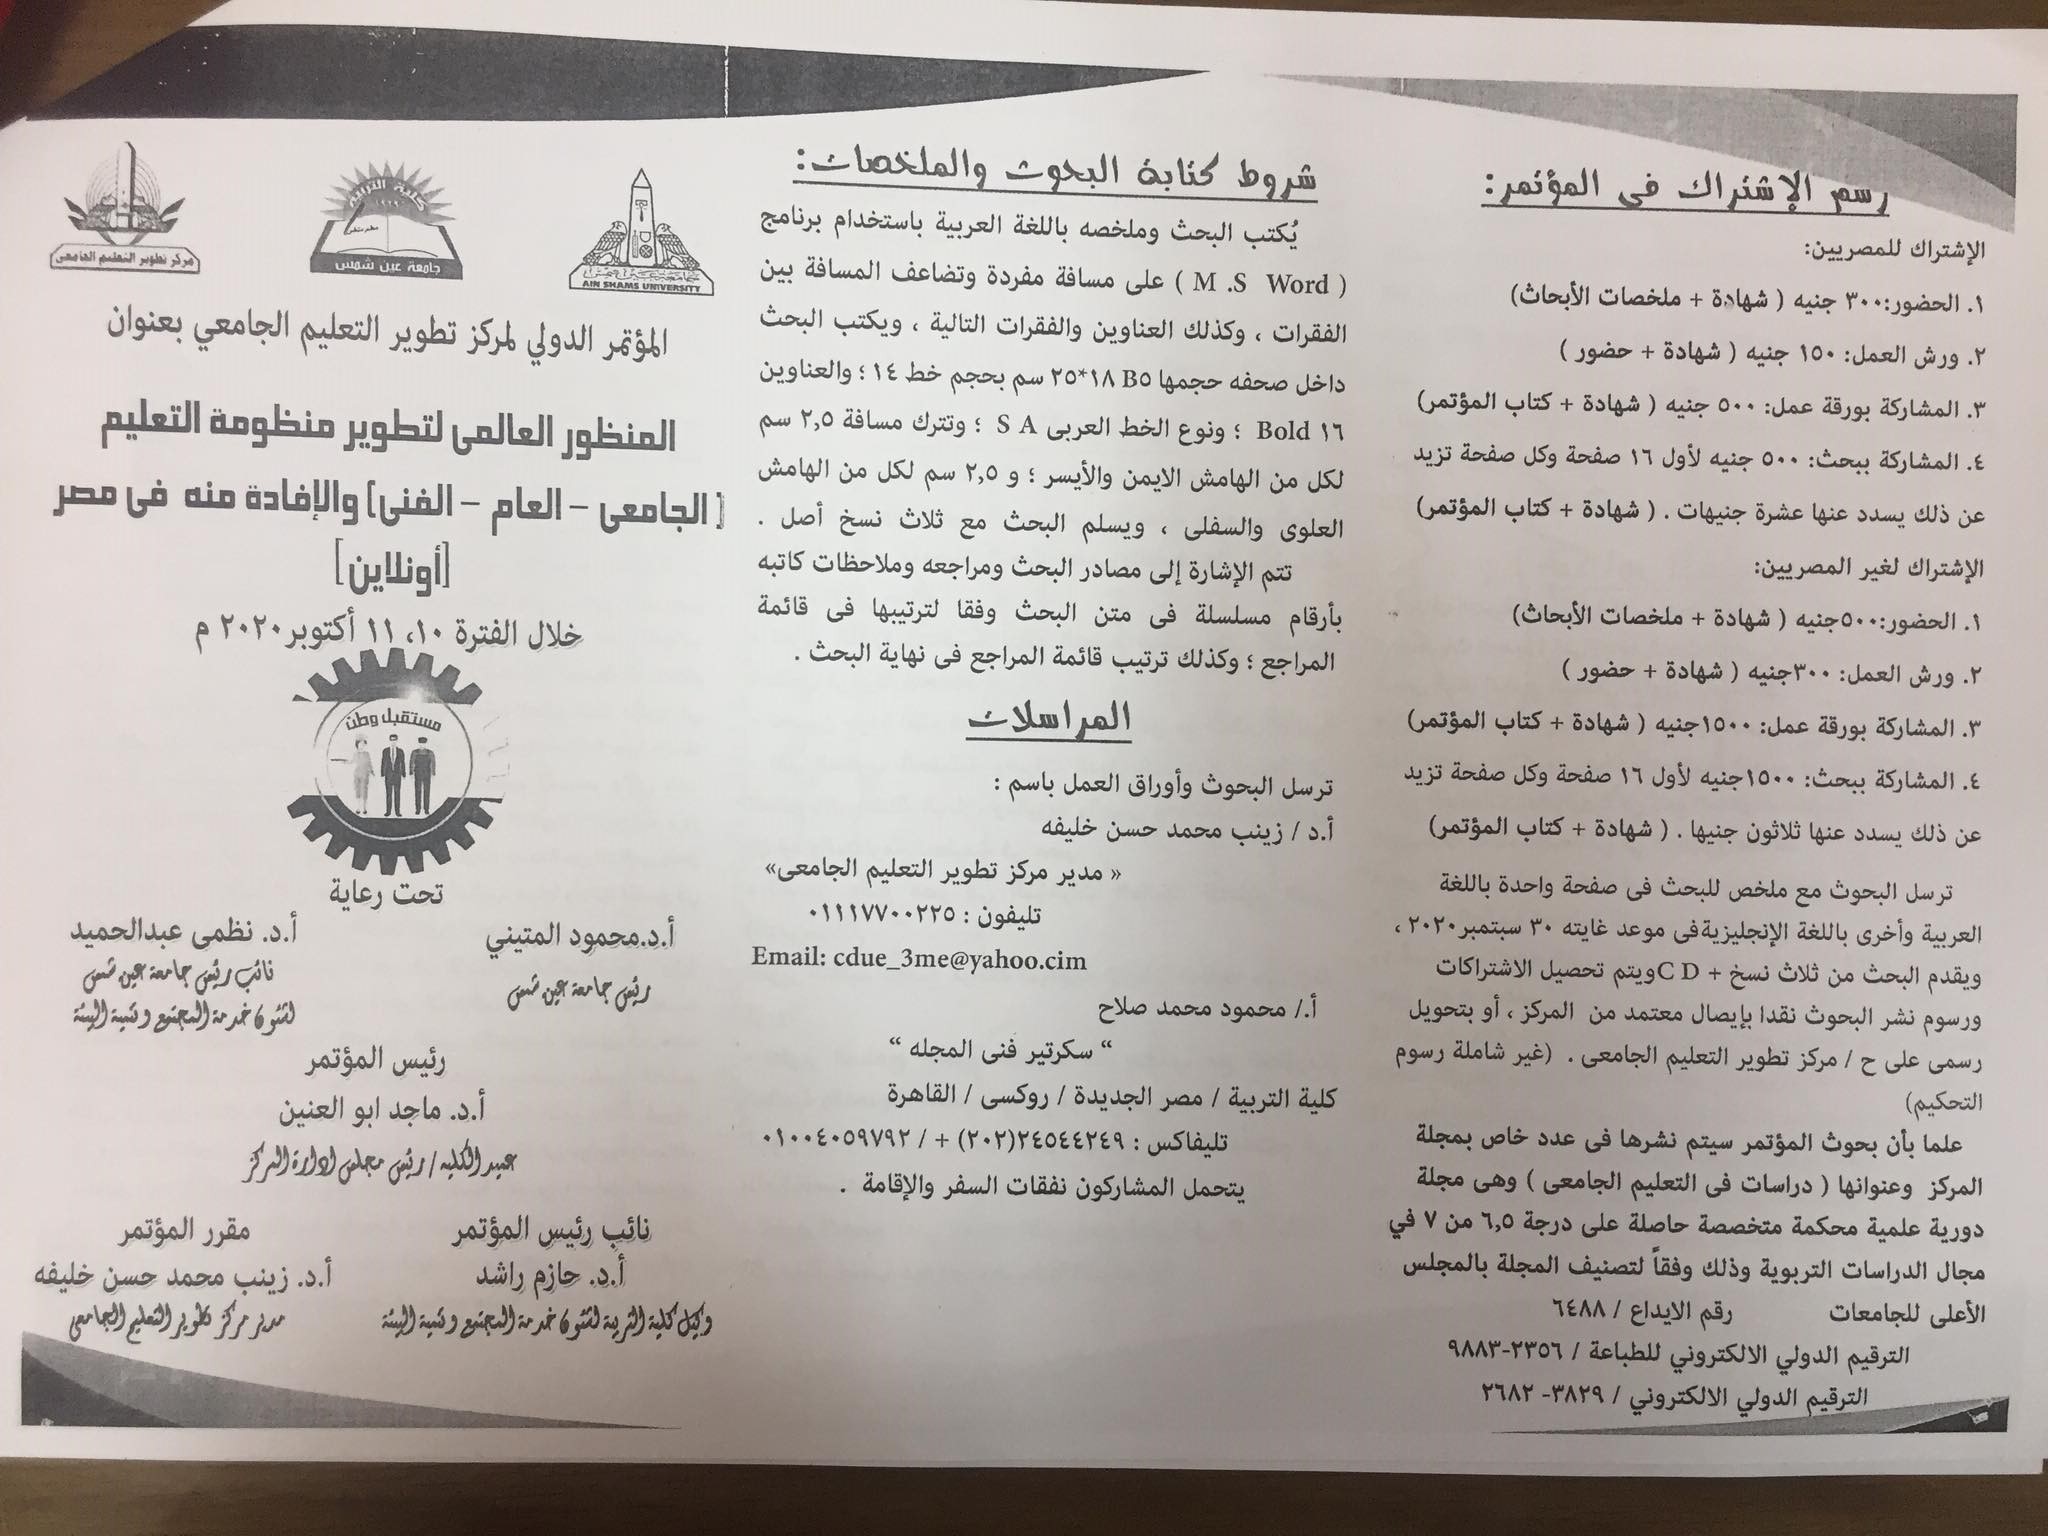 رسم الإشتراك فى المؤتمر:
الإشتراك للمصريين:
١. الحضور:٣٠٠ جنيه ( شهادة + ملخصات الأبحاث)
٢. ورش العمل: ١٥٠ جنيه ( شهادة + حضور )
٣. المشاركة بورقة عمل: ٥٠٠ جنيه ( شهادة + كتاب المؤتمر)
٤. المشاركة ببحث: ٥٠٠ جنيه لأول ١٦ صفحة وكل صفحة تزيد
عن ذلك يسدد عنها عشرة جنيهات . ( شهادة + كتاب المؤتمر)
الإشتراك لغير المصريين:
١. الحضور:٥٠٠جنيه ( شهادة + ملخصات الأبحاث)
٢. ورش العمل: ٣٠٠جنيه ( شهادة + حضور )
٣. المشاركة بورقة عمل: ١٥٠٠جنيه ( شهادة + كتاب المؤتمر)
٤. المشاركة ببحث: ١٥٠٠جنيه لأول ١٦ صفحة وكل صفحة تزيد
عن ذلك يسدد عنها ثلاثون جنيها . ( شهادة + كتاب المؤتمر)
ترسل البحوث مع ملخص للبحث فى صفحة واحدة باللغة
العربية وأخرى باللغة الإنجليزيةفى موعد غايته ٣٠ سبتمبر٢٠٢٠ ،
ويقدم البحث من ثلاث نسخ + C Dويتم تحصيل الاشتراكات
ورسوم نشر البحوث نقدا بإيصال معتمد من المركز ، أو بتحويل
رسمى على ح / مركز تطوير التعليم الجامعى . (غير شاملة رسوم
التحكيم)
علما بأن بحوث المؤتمر سيتم نشرها فى عدد خاص بمجلة
المركز وعنوانها ( دراسات فى التعليم الجامعى ) وهى مجلة
دورية علمية محكمة متخصصة حاصلة على درجة ٦,٥ من ٧ في
مجال الدراسات التربوية وذلك وفقاً لتصنيف المجلة بالمجلس
الأعلى للجامعات رقم الايداع / ٦٤٨٨
الترقيم الدولي الالكتروني للطباعة / ٢٣٥٦-٩٨٨٣
الترقيم الدولي الالكتروني / ٣٨٢٩- ٢٦٨٢
شروط كتابة البحوث والملخصات:
يُكتب البحث وملخصه باللغة العربية باستخدام برنامج
( M .S Word ) على مسافة مفردة وتضاعف المسافة بين
الفقرات ، وكذلك العناوين والفقرات التالية ، ويكتب البحث
داخل صحفه حجمها B٥ ١٨*٢٥ سم بحجم خط ١٤ ؛ والعناوين
١٦ Bold ؛ ونوع الخط العربى S A ؛ وتترك مسافة ٢,٥ سم
لكل من الهامش الايمن والأيسر ؛ و ٢,٥ سم لكل من الهامش
العلوى والسفلى ، ويسلم البحث مع ثلاث نسخ أصل .
تتم الإشارة إلى مصادر البحث ومراجعه وملاحظات كاتبه
بأرقام مسلسلة فى متن البحث وفقا لترتيبها فى قائمة
المراجع ؛ وكذلك ترتيب قائمة المراجع فى نهاية البحث .
المراسلات
ترسل البحوث وأوراق العمل باسم :
أ.د / زينب محمد حسن خليفه
« مدير مركز تطوير التعليم الجامعى»
تليفون : ٠١١١٧٧٠٠٢٢٥
Email: cdue_3me@yahoo.cim
أ./ محمود محمد صلاح
“ سكرتير فنى المجله “
كلية التربية / مصر الجديدة / روكسى / القاهرة
تليفاكس : ٢٤٥٤٤٢٤٩(٢٠٢) + / ٠١٠٠٤٠٥٩٧٩٢
يتحمل المشاركون نفقات السفر والإقامة .
جامعة عين شمس
AIN SHAMS UNIVERSITY
كلية التربية
جامعة عين شمس
مركز تطوير التعليم الجامعى
المؤتمر الدولي لمركز تطوير التعليم الجامعي بعنوان
المنظور العالمى لتطوير منظومة التعليم
( الجامعى – العام – الفنى) والإفادة منه فى مصر
[أونلاين]
خلال الفترة ١٠، ١١ أكتوبر٢٠٢٠ م
مستقبل وطن
تحت رعاية
أ.د.محمود المتيني
رئيس جامعة عين شمس
أ.د. نظمى عبدالحميد
نائب رئيس جامعة عين شمس
لشئون خدمة المجتمع وتنمية البيئة
رئيس المؤتمر
أ.د. ماجد ابو العنين
عميد الكليه / رئيس مجلس ادارة المركز
نائب رئيس المؤتمر
أ.د. حازم راشد
وكيل كلية التربية لشئون خدمة المجتمع وتنمية البيئة
مقرر المؤتمر
أ.د. زينب محمد حسن خليفه
مدير مركز تطوير التعليم الجامعى